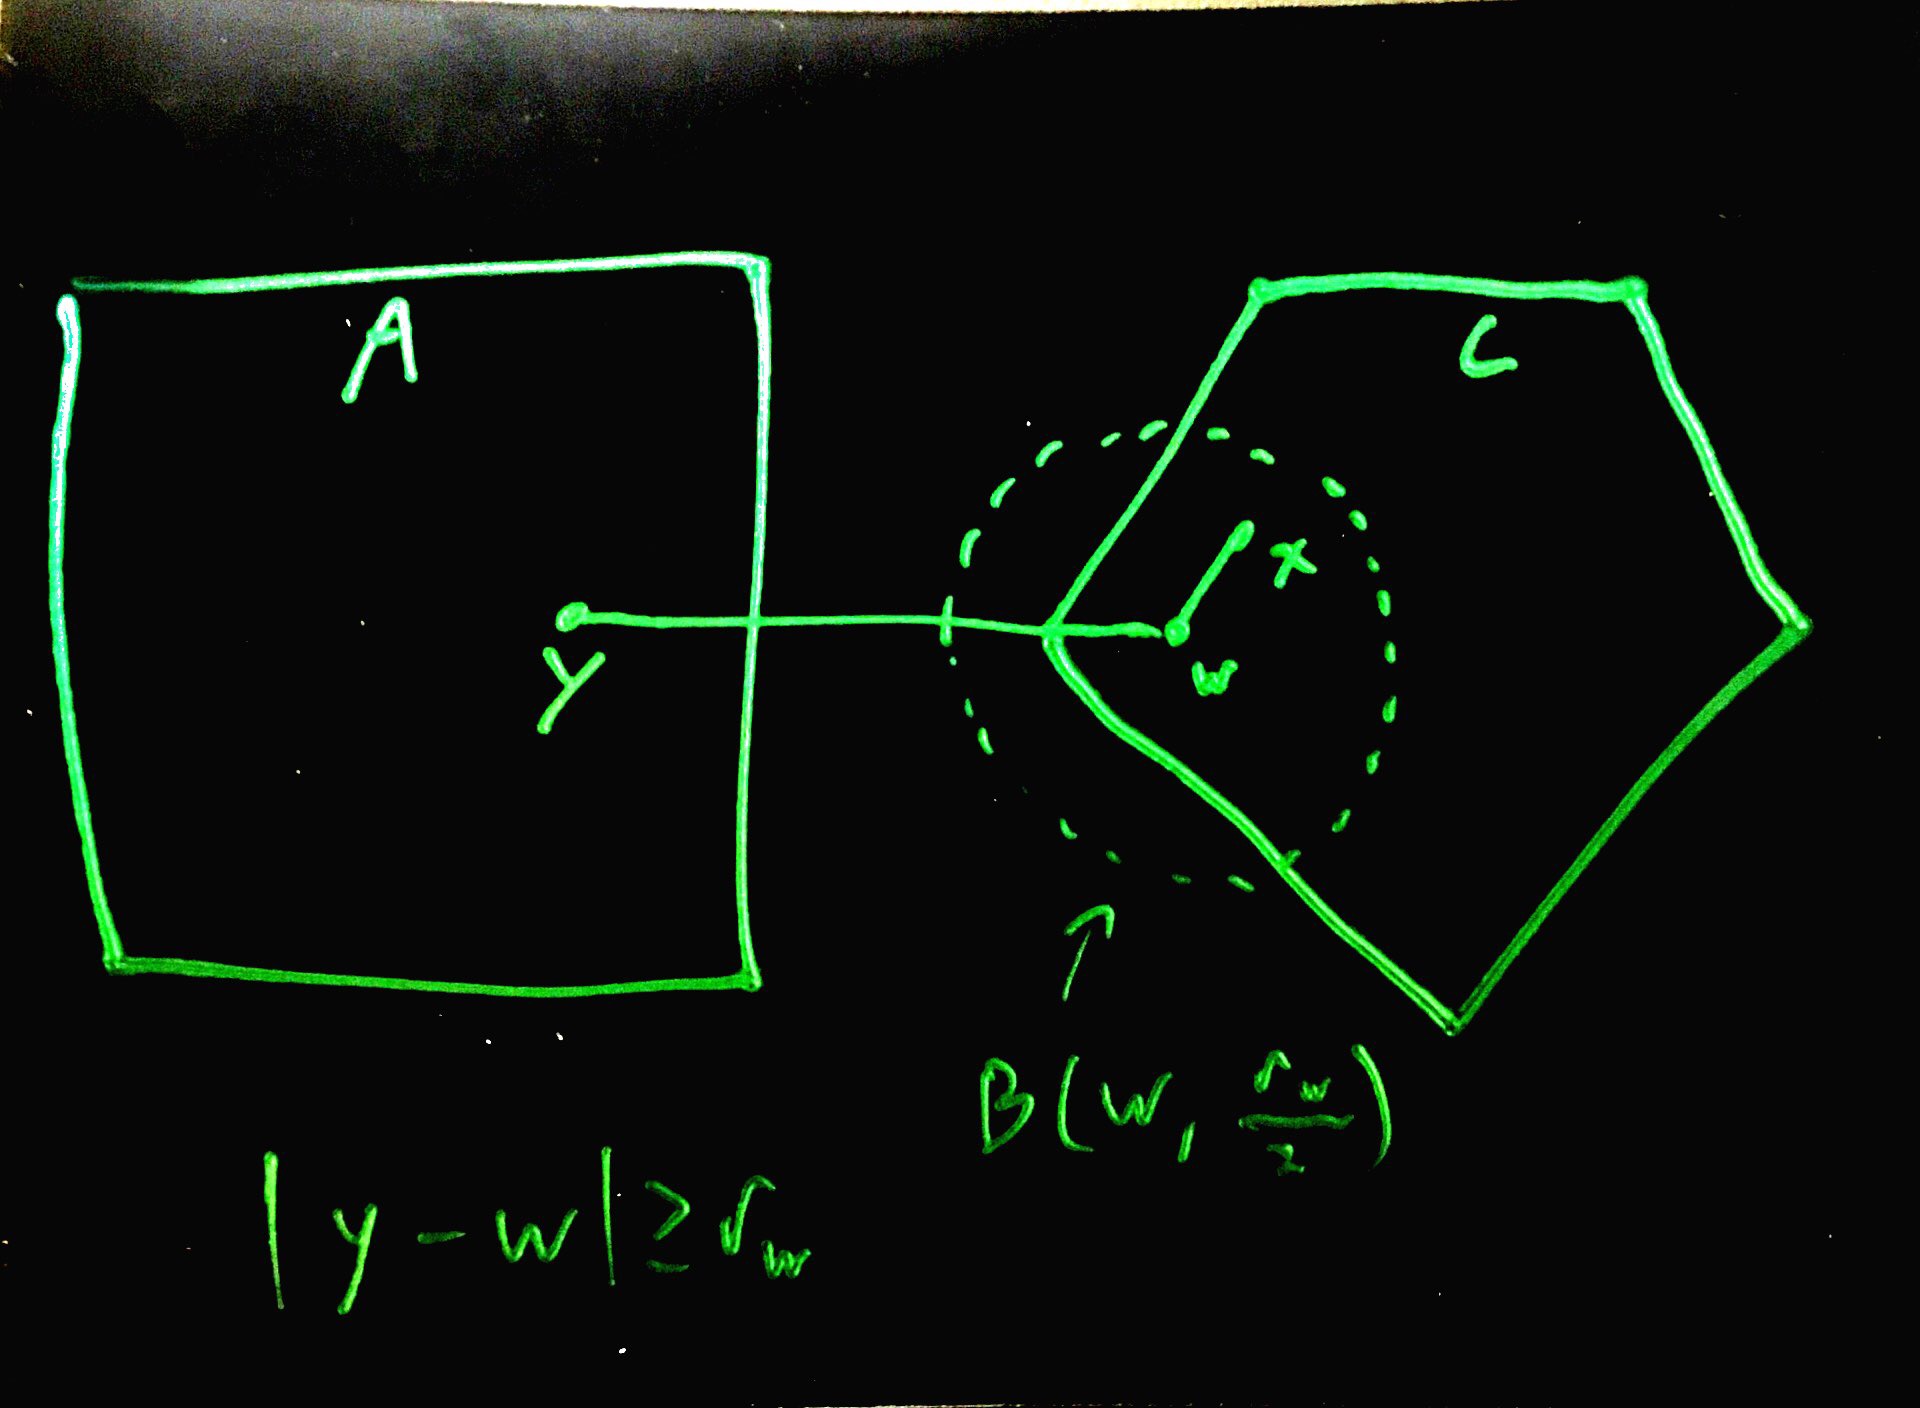 A
C
x
y
w
B(w, r_w/2)
|y - w| ≥ r_w